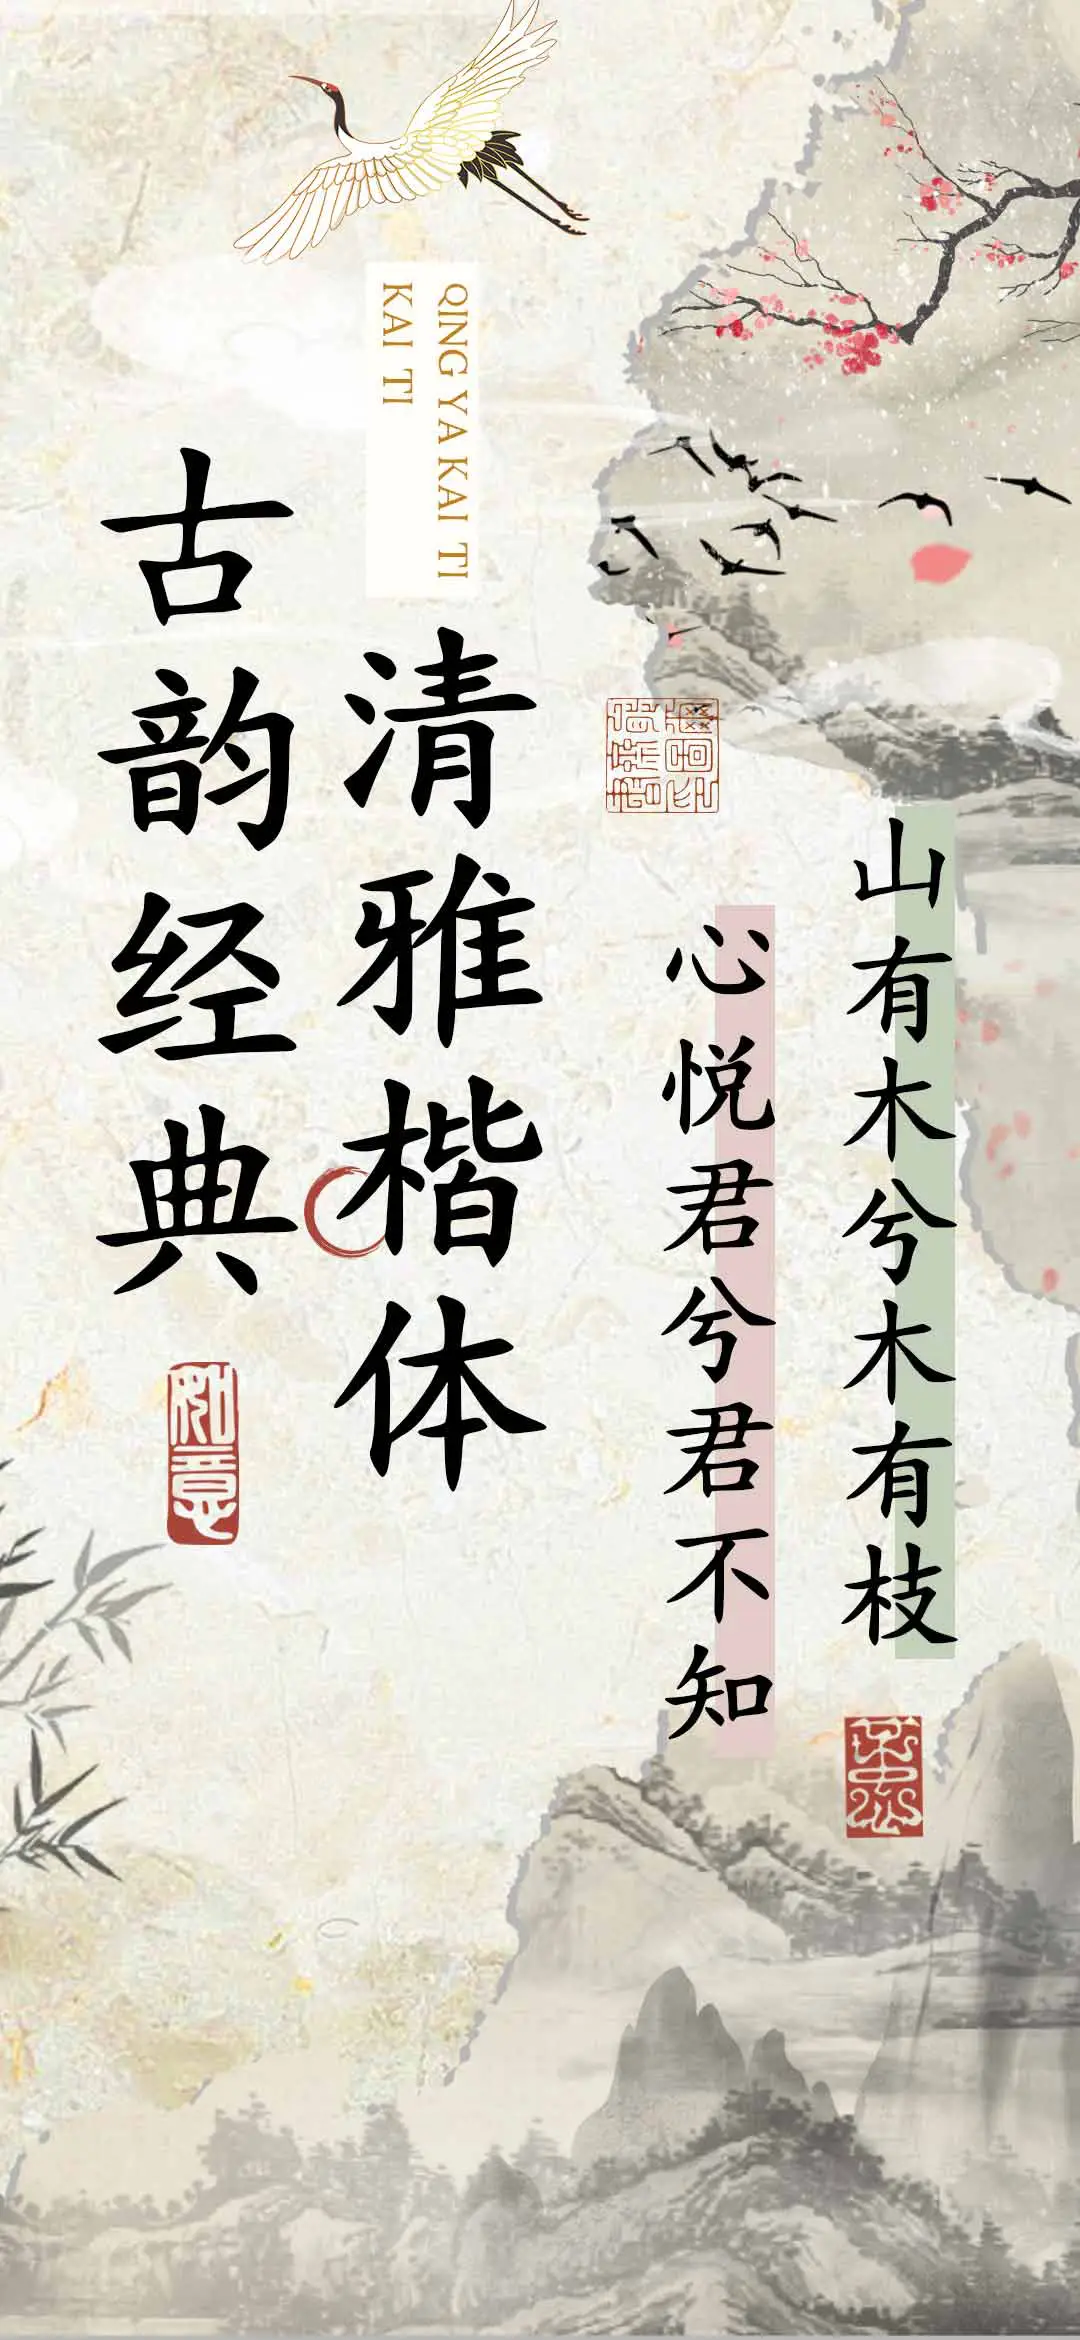 山有木兮木有枝
心悦君兮君不知
QING YA KAI TI
KAI TI
清雅楷体
古韵经典
如意